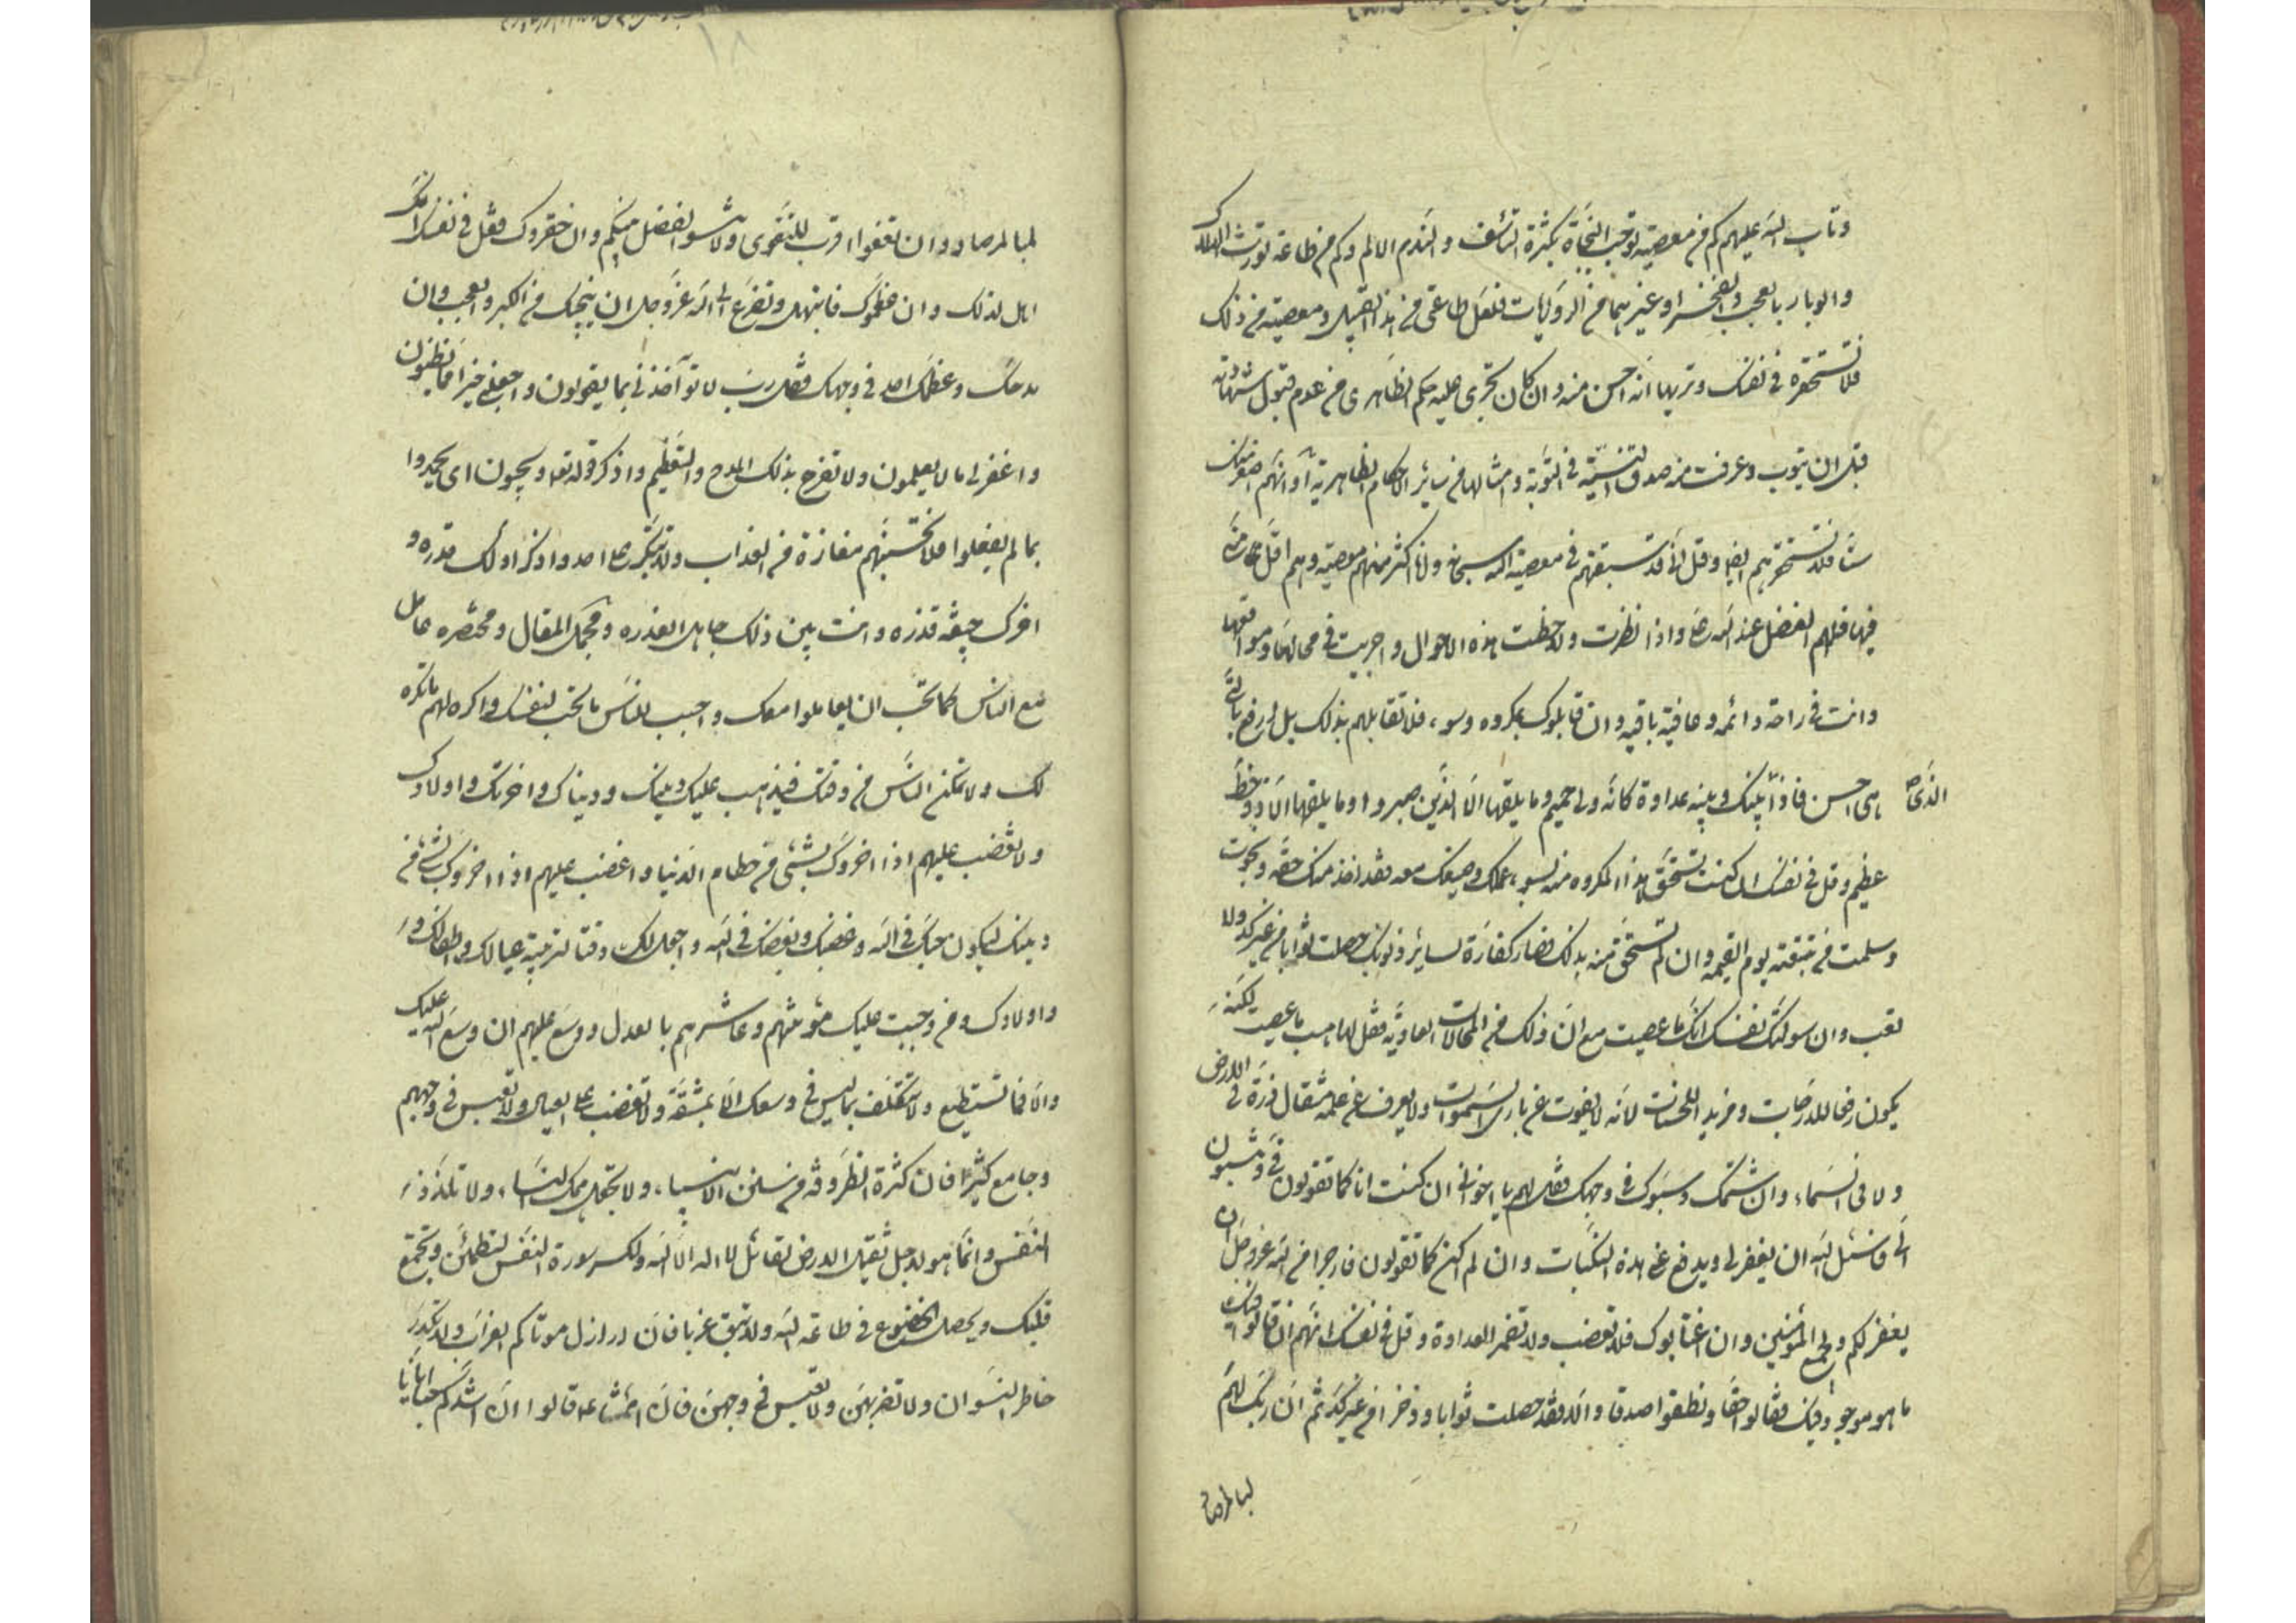 وتاب الله عليهم كم من معصية توجب النجاة بكثرة التأسف والندم الالم وكم من طاعة تورث الهلاك
والوبار بالعجب والفخر او غيرهما من الرويات فلعل طاعتى من هذا القبيل ومعصيته من ذلك
فلا تستحقره فى نفسك وتريها انه احسن منه وان كان تجرى عليه حكم الظاهرى من عدم قبول شهادته
قبل ان يتوب وعرفت منه صدق النية فى التوبة وامثالها من سائر الاحكام الظاهرية او انهم اصغر منك
سنا فلا تستحقرهم ايضا وقل انى قد سبقتهم فى معصية الله سبحانه وانا اكثر منهم معصية وهم اقل منى
فيها فلهم الفضل عند الله واذا نظرت ولاحظت هذه الاحوال واجريت فى محالها ومواقعها
وانت فى راحة دائمه وعافية باقيه وان قابلوك بمكروه وسوء فلا تقابلهم بذلك بل ادفع بالتى
هى احسن فاذا الذى بينك وبينه عداوة كانه ولى حميم وما يلقيها الا الذين صبروا وما يلقيها الا ذو حظ
عظيم وقل فى نفسك ان كنت تستحق هذا المكروه منه لسوء عملك وصنيعك معه فقد اخذ منك حقه ونجوت
وسلمت من تبعته يوم القيمه وان لم تستحق منه بذلك فصار كفارة لسائر ذنوبك حصلت ثوابا من غير كد ولا
تعب وان سولتك نفسك انك ما عصيت مع ان ذلك من المحالات العادية فقل لها هب ما عصيت لكنه
يكون رفعا للدرجات ومزيدا للحسنات لانه لا يفوت عن بارى السموات ولا يعرف عن علمه مثقال ذرة فى الارض
ولا فى السماء وان شتمك وسبوك فى وجهك فقل لهم يا اخوانى ان كنت انا كما تقولون فىّ وتنسبون
الى فاسئل الله ان يغفر لى ويدفع عنى هذه النكبات وان لم اكن كما تقولون فارجوا من الله عز وجل ان
يغفر لكم ولجميع المؤمنين وان اغتابوك فلا تغضب ولا تضمر العداوة وقل فى نفسك انهم ان قالوا فيك
ما هو موجود فيك فقالوا حقا ونطقوا صدقا والا فقد حصلت ثوابا وذخرا من غير كد ثم ان ربك لهم
لبالمرصاد
لبالمرصاد وان تعفوا اقرب للتقوى ولا تنسوا الفضل بينكم وان حقروك فقل فى نفسك انك
اهل لذلك وان عظموك فابتهل وتضرع الى الله عز وجل ان ينجيك من الكبر والعجب وان
مدحك وعظمك احد فى وجهك فقل رب لا تؤآخذنى بما يقولون واجعلنى خيرا مما يظنون
واغفر لى ما لا يعلمون ولا تفرح بذلك المدح والتعظيم واذكر قوله تعا ويحبون ان يحمدوا
بما لم يفعلوا فلا تحسبنهم بمفازة من العذاب ولا تتكبر على احد واذكر اولك مذره و
اخرك جيفة قذره وانت بين ذلك حامل العذره ومجمل المقال ومختصره عامل
مع الناس كما تحب ان يعاملوا معك واحبب للناس ما تحب لنفسك واكره لهم ما تكره
لك ولا تمكن الناس من وقتك فيذهب عليك دينك ودنياك واخرتك واولادك
ولا تغضب عليهم اذا اخروك بشىء من حطام الدنيا واغضب عليهم اذا اخروك بشىء من
دينك ليكون حبك فى الله وغضبك وبغضك فى الله واجعل لك وقتا لتربية عيالك واطفالك و
واولادك ومن وجبت عليك مؤنتهم وعاشرهم بالعدل ووسع عليهم ان وسع الله عليك
والا فما تستطيع ولا تتكلف بما ليس فى وسعك الا بمشقة ولا تغضب على العيال ولا تعبس فى وجههم
وجامع كثيرا فان كثرة الطروقة من سنن الانبياء ولا تجعل همك النساء ولا تلذذ
النفس وانما هو لاجل تثقيل الارض بقائل لا اله الا الله ولكسر سورة النفس لتطمئن ويجتمع
قلبك ويحصل الخضوع فى طاعة الله ولا تبق عزبا فان اراذل موتاكم العزاب ولا تكدر
خاطر النسوان ولا تضربهن ولا تعبس فى وجههن فان ائمتنا ع قالوا ان اشدكم حبا لنا